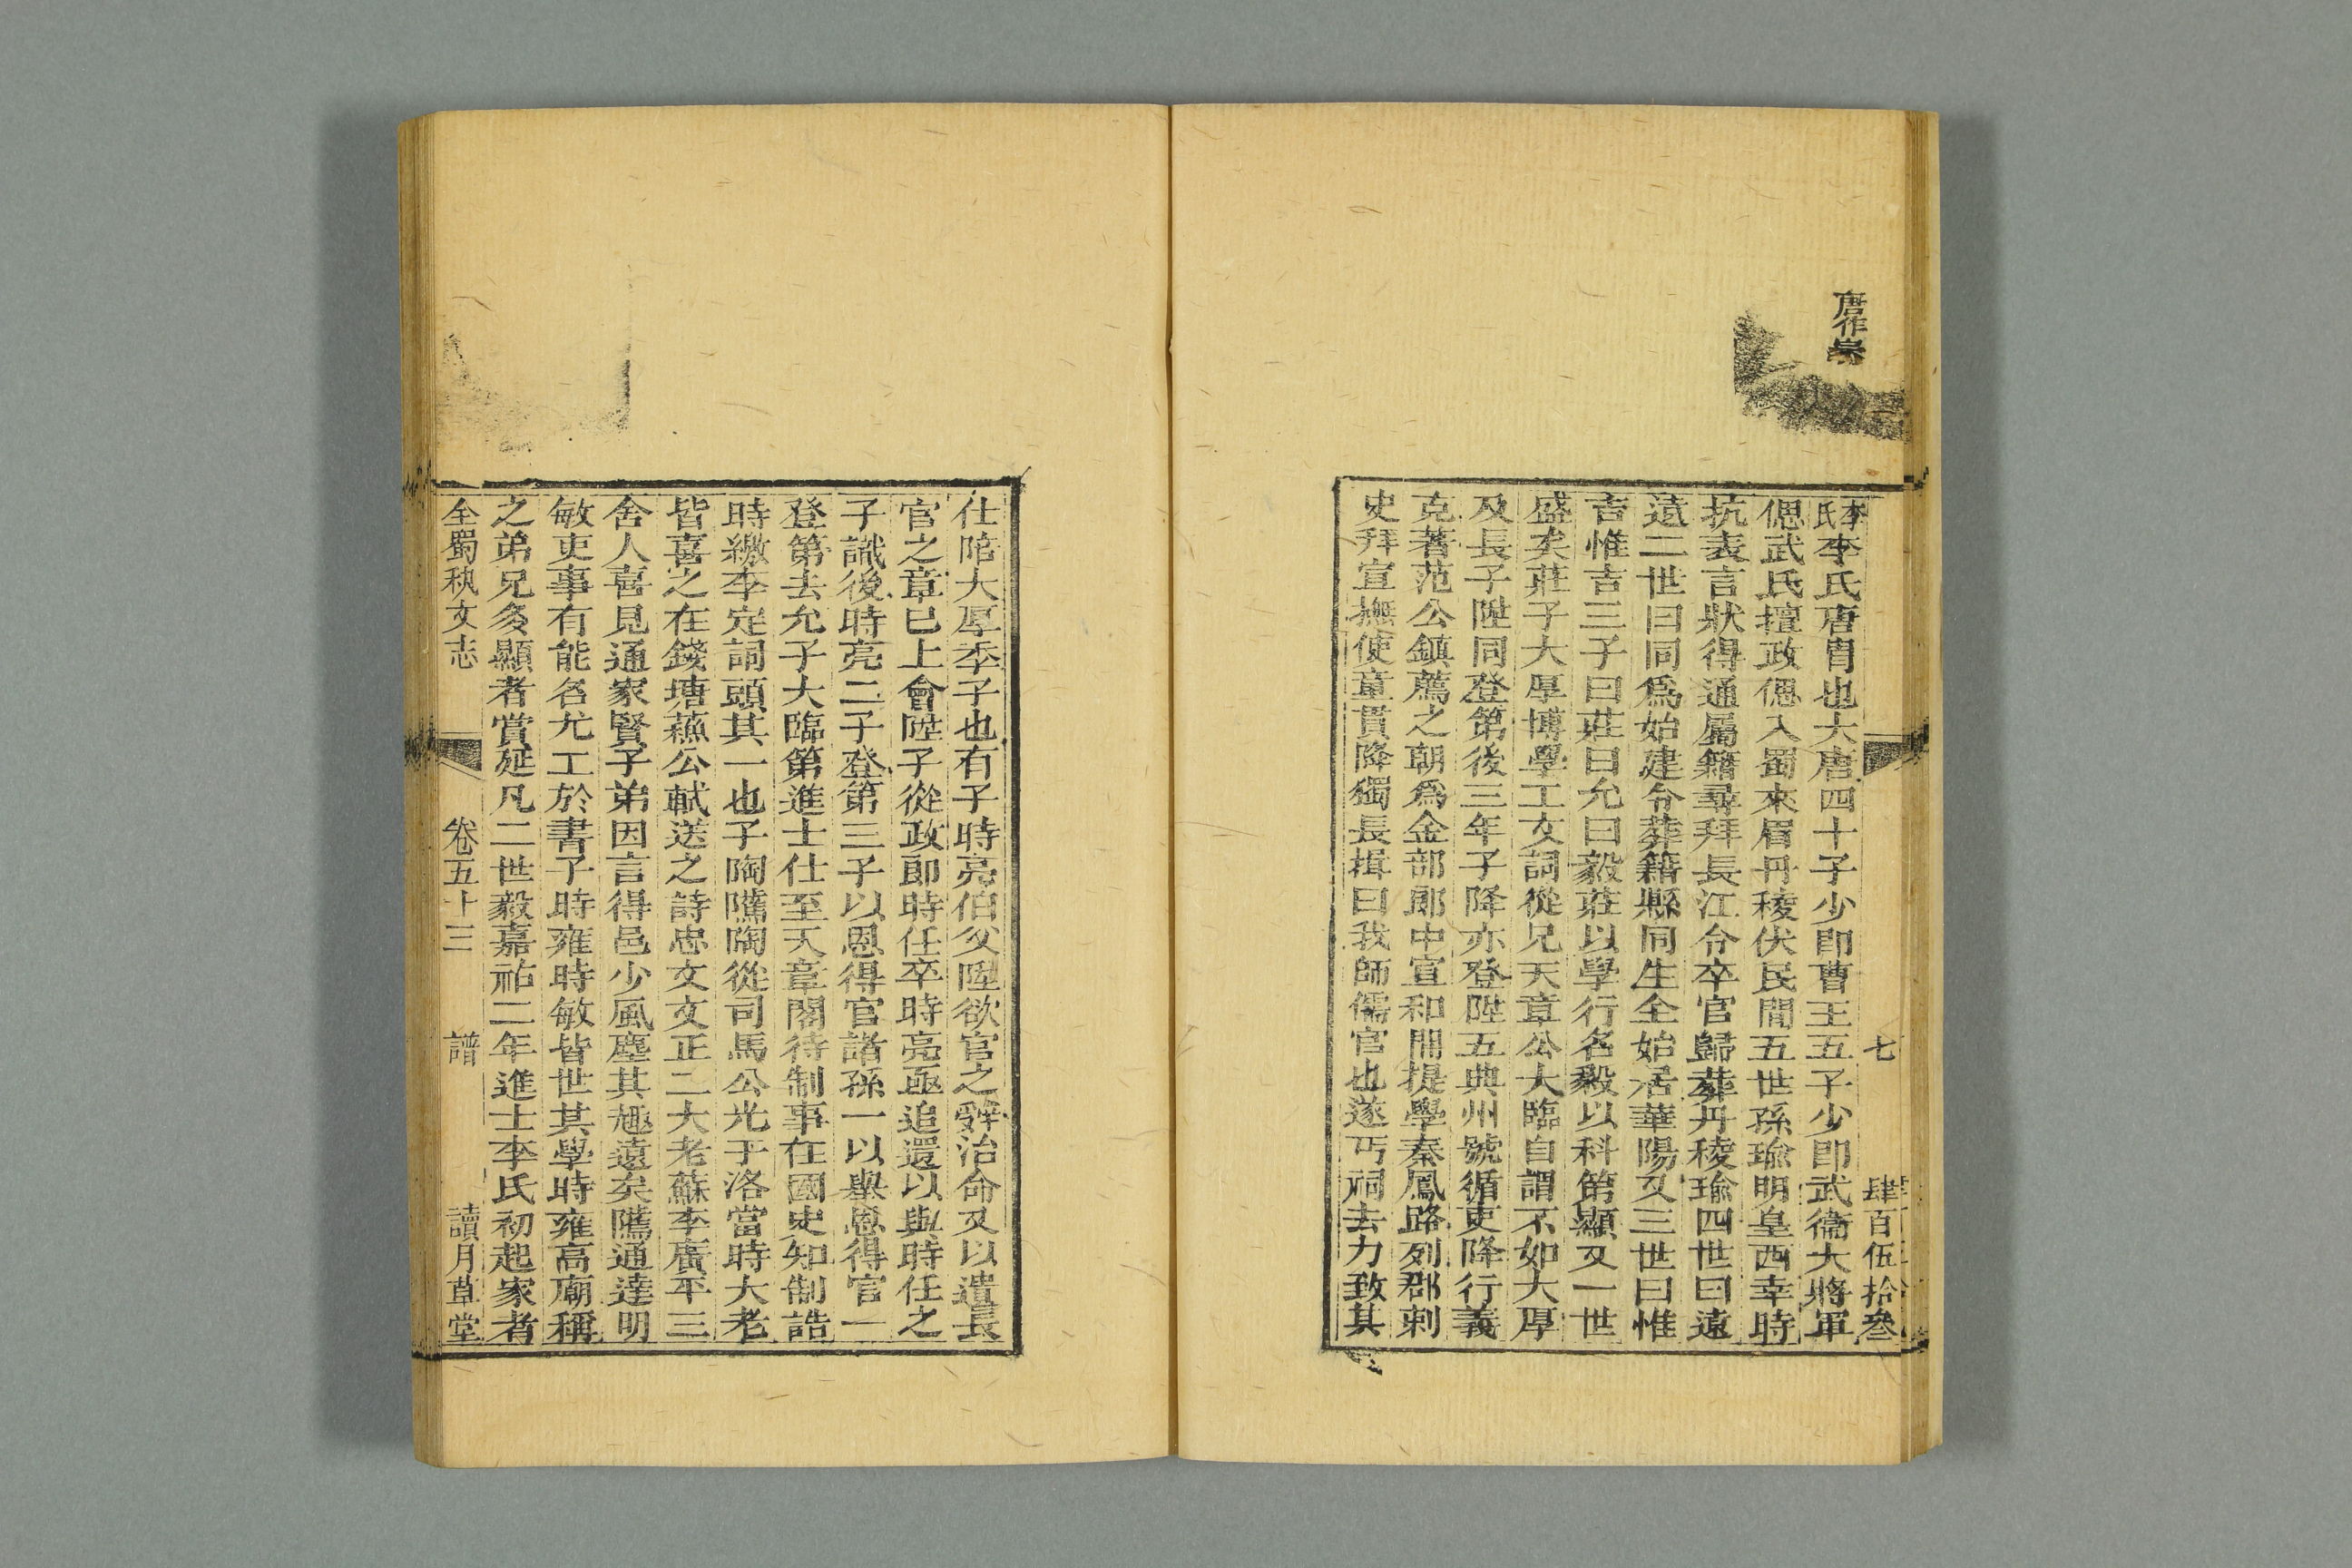 唐作崇
七
肆百伍拾叄
李氏李氏唐胄也大唐四十子少卽曹王五子少卽武衞大將軍
偲武氏擅政偲入蜀來眉丹稜伏民間五世孫瑜明皇西幸時
抗表言狀得通屬籍尋拜長江令卒官歸葬丹稜瑜四世曰遠
遠二世曰同爲始建令葬籍縣同生全始居華陽又三世曰惟
吉惟吉三子曰莊曰允曰毅莊以學行名毅以科第顯又一世
盛矣莊子大厚博學工文詞從兄天章公大臨自謂不如大厚
及長子陞同登第後三年子降亦登陞五典州號循吏降行義
克著范公鎮薦之朝爲金部郞中宣和開提學秦鳳路列郡刺
史拜宣撫使童貫降獨長揖曰我師儒官也遂丐祠去力致其
仕陪大厚季子也有子時亮伯父陞欲官之辤治命又以遺長
官之章巳上會陞子從政郞時任卒時亮亟追還以與時任之
子識後時亮二子登第三子以恩得官諸孫一以舉恩得官一
登第去允子大臨第進士仕至天章閣待制事在國史知制誥
時繳李定詞頭其一也子陶騭陶從司馬公光于洛當時大老
皆喜之在錢塘蘇公軾送之詩忠文文正二大老蘇李廣平三
舍人喜見通家賢子弟因言得邑少風塵其趣遠矣騭通達明
敏吏事有能名尤工於書子時雍時敏皆世其學時雍高廟稱
之弟兄多顯者賞延凡二世毅嘉祐二年進士李氏初起家者
全蜀秇文志
卷五十三
譜
讀月草堂